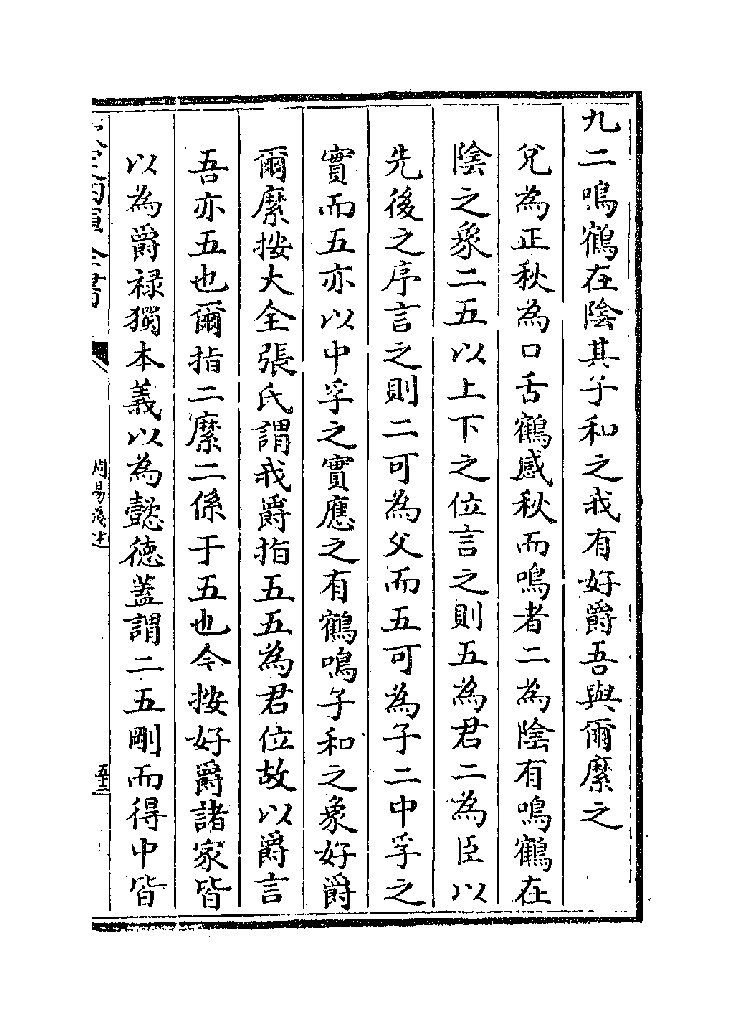 九二鳴鶴在陰其子和之我有好爵吾與爾縻之
兌為正秋為口舌鶴感秋而鳴者二為陰有鳴鶴在
陰之象二五以上下之位言之則五為君二為臣以
先後之序言之則二可為父而五可為子二中孚之
實而五亦以中孚之實應之有鶴鳴子和之象好爵
爾縻按大全張氏謂我爵指五五為君位故以爵言
吾亦五也爾指二縻二係于五也今按好爵諸家皆
以為爵禄獨本義以為懿德蓋謂二五剛而得中皆
欽定四庫全書
周易淺述